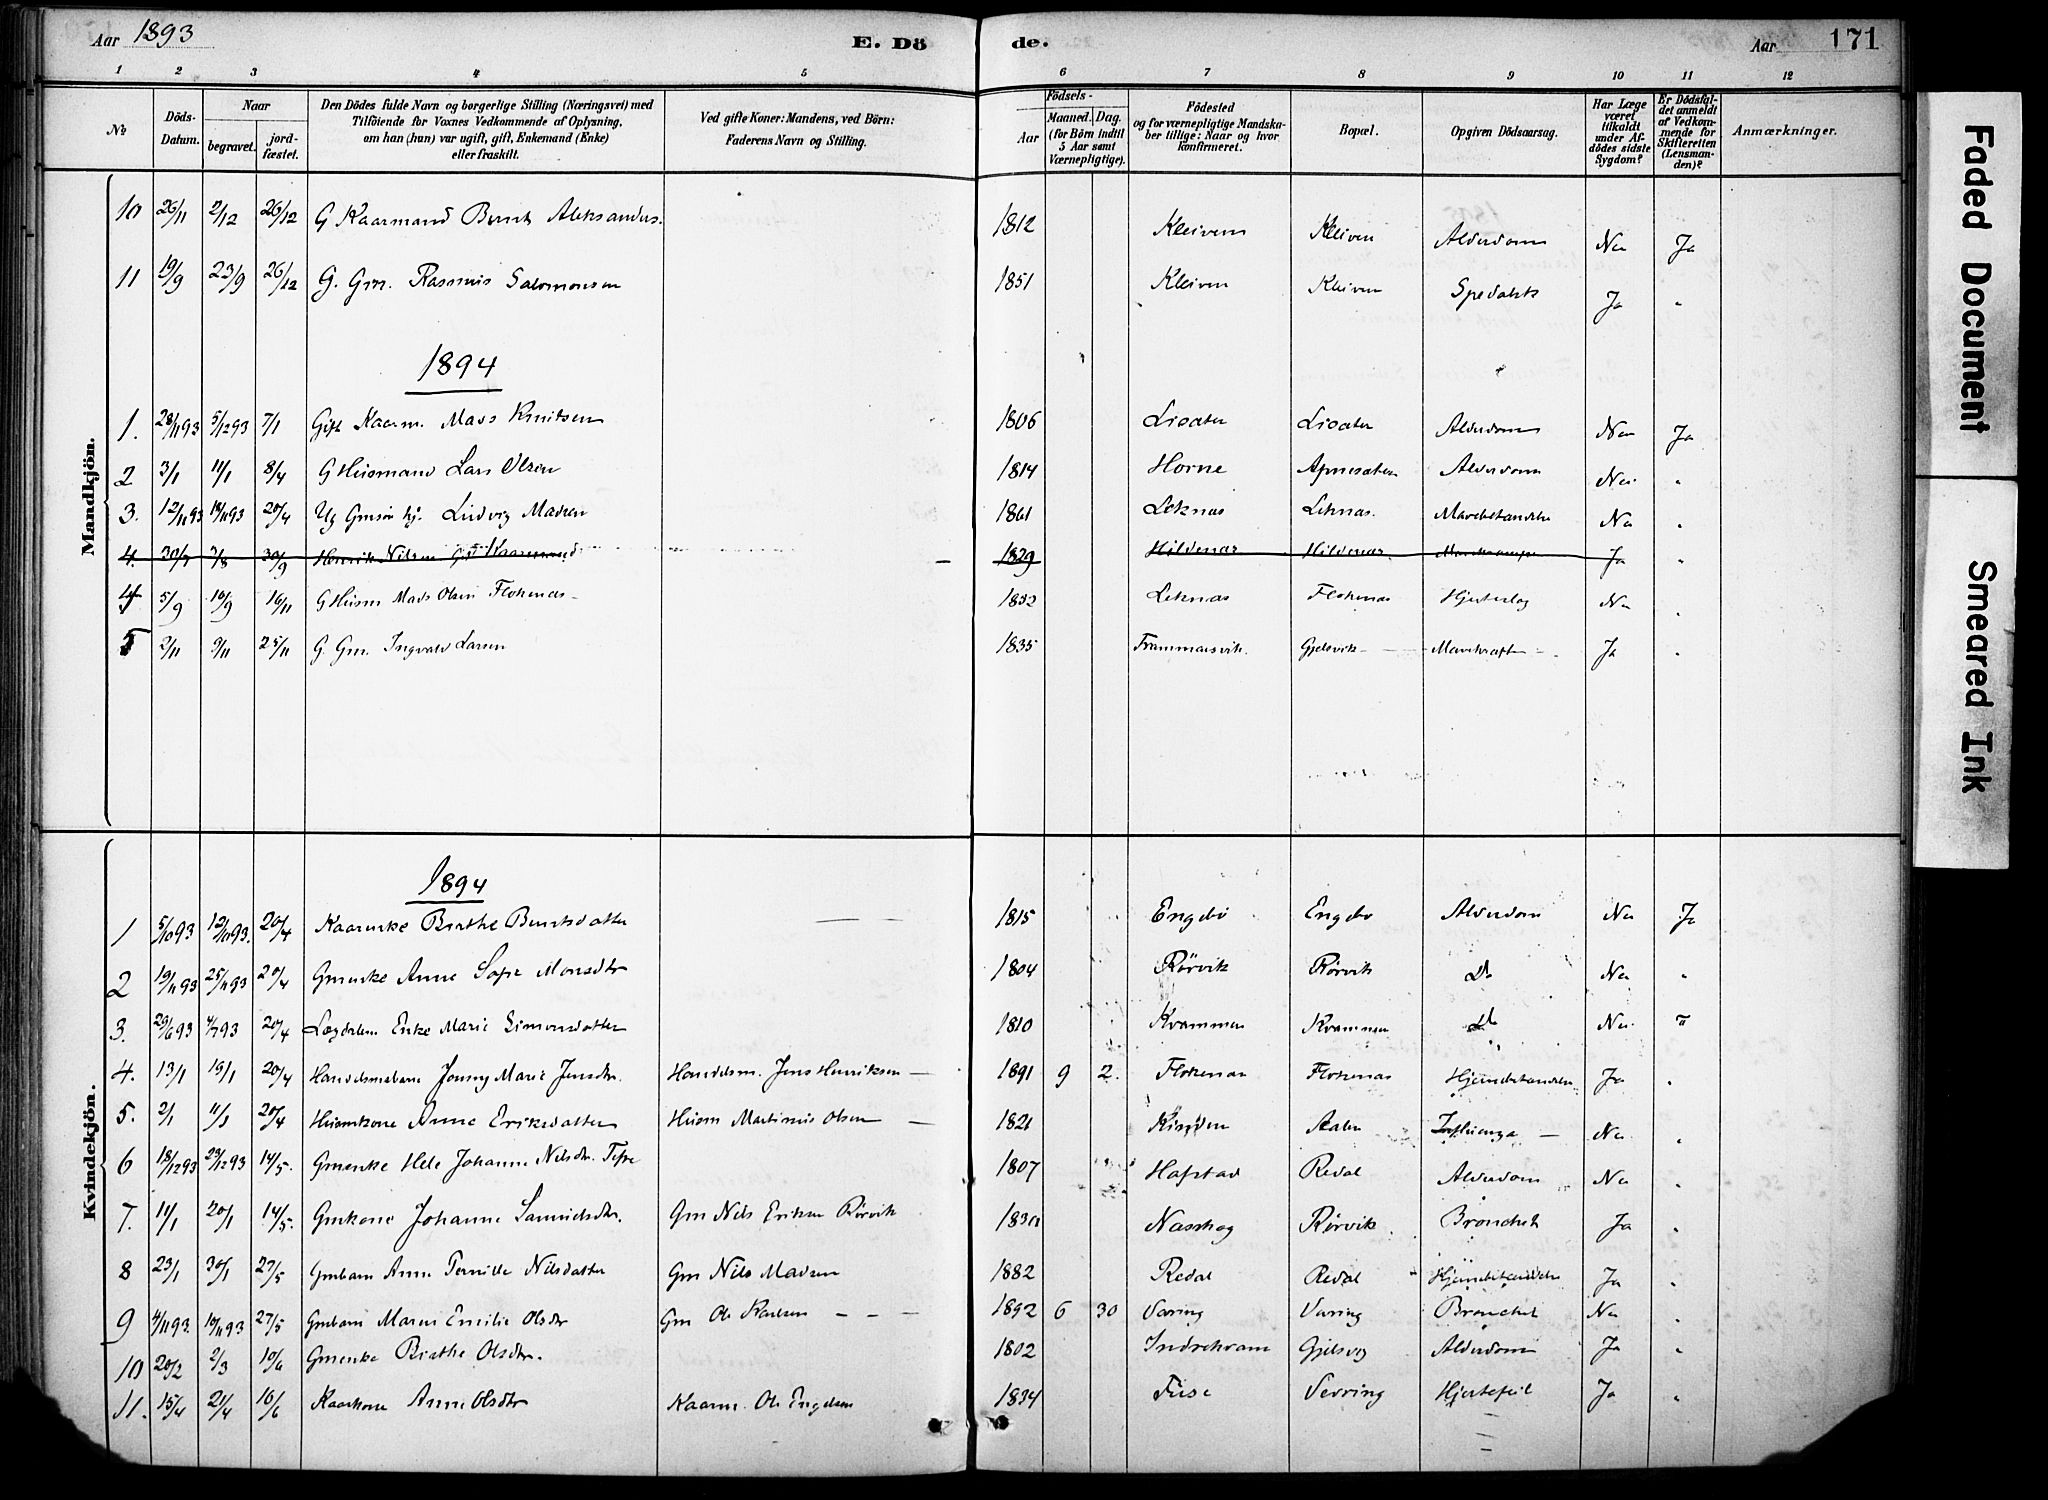 Aar 1893 E. Dö de. Aar 171
1 2 3 4 5 6 7 8 9 10 11 12
№
Döds-Datum.
Naar
begravet.
jord-fæstet.
Den Dödes fulde Navn og borgerlige Stilling (Næringsvei) med
Tilföiende for Voxnes Vedkommende af Oplysning,
om han (hun) var ugift, gift, Enkemand (Enke)
eller fraskilt.
Ved gifte Koner: Mandens, ved Börn:
Faderens Navn og Stilling.
Födsels-
Aar
Maaned. Dag.
(for Börn indtil
5 Aar samt
Værnepligtige).
Födested
og for værnepligtige Mandska-
ber tillige: Naar og hvor
konfirmeret.
Bopæl.
Opgiven Dödsaarsag.
Har Læge
været
tilkaldt
under Af-
dödes sidste
Sygdom?
Er Dödsfal-
det anmeldt
af Vedkom-
mende for
Skifteretten
(Lensman-
den)?
Anmærkninger.
Mandkjön.
10 26/11 2/12 26/12 G Kaarmand Bernt Aleksanders. 1812 Kleiven Kleiven Alderdom Nei Ja
11 19/9 23/9 26/12 G. Gm. Rasmus Salomonsen 1851 Kleiven Kleiven Spedalsk Ja "
1894
1. 28/11 93 5/12 93 7/1 Gift Kaarm. Mads Knutsen 1806 Lisæter Lisæter Alderdom Nei Ja
2 3/1 11/1 8/4 G Husmand Lars Olsen 1814 Horne Alderdom Nei "
3. 12/11 93 18/11 93 20/4 Ug Gmsøn Ludvig Madsen 1861 Leknæs Leknæs. Nei "
4. 30/7 3/8 30/9 Henrik Nilsen Gift Kaarmand 1829 Hildenæs Hildenæs Ja "
4 5/9 10/9 16/11 G Husm Mads Olsen Flokenæs 1832 Leknæs Flokenæs Hjerteslag Nei "
5 2/11 9/11 25/11 G. Gm. Ingvald Larsen 1835 Frammarsvik. Gjelsvik Mavekræft Ja "
Kvindekjön.
1894
1 5/10 93 12/10 93. 20/4 Kaarenke Birthe Berntsdatter 1815 Engebø Engebø Alderdom Nei Ja
2 19/11 93 25/11 93 20/4 Gmenke Anne Sofie Monsdtr 1804 Rørvik Rørvik Do Nei "
3. 29/6 93 4/7 93 20/4 Lægdslem Enke Marie Simonsdatter 1810 Kvammen Kvammen Do Nei "
4. 13/1 19/1 20/4 Handelsmsbarn Jonny Marie Jensdtr. Handelsm. Jens Henriksen 1891 9 2. Flokenæs Flokenæs Hjernebetændelse Ja "
5. 2/1 11/1 20/4 Husmkone Anne Eriksdatter Husm Martinus Olsen 1821 Influenza Nei "
6 18/12 93 23/12 93 14/5. Gmenke Hele Johanne Nilsdtr. 1807 Hafstad Redal Alderdom Nei "
7. 11/1 20/1 14/5. Gmkone Johanne Samuelsdtr. Gm Nils Eriksen Rørvik 1830 Nasskog Rørvik. Bronchit Ja "
8 23/1 30/1 27/5 Gmbarn Anne Pernille Nilsdatter Gm Nils Madsen 1882 Redal Redal Hjernebetændelse Ja "
9 4/11 93. 10/11 93 27/5 Gmbarn Maren Emilie Olsdtr Gm Ole Karlsen 1892 6 30 Væring Væring Bronchit Nei "
10 20/2 2/3 10/6 Gmenke Birthe Olsdtr. 1802 Indrekvam Gjelsvig Alderdom Ja "
11. 15/4 21/4 10/6 Kaarkone Anne Olsdtr Kaarm. Ole Engelsen 1834 Fuse Værring Hjertefeil Ja "
Faded Document
Smeared Ink